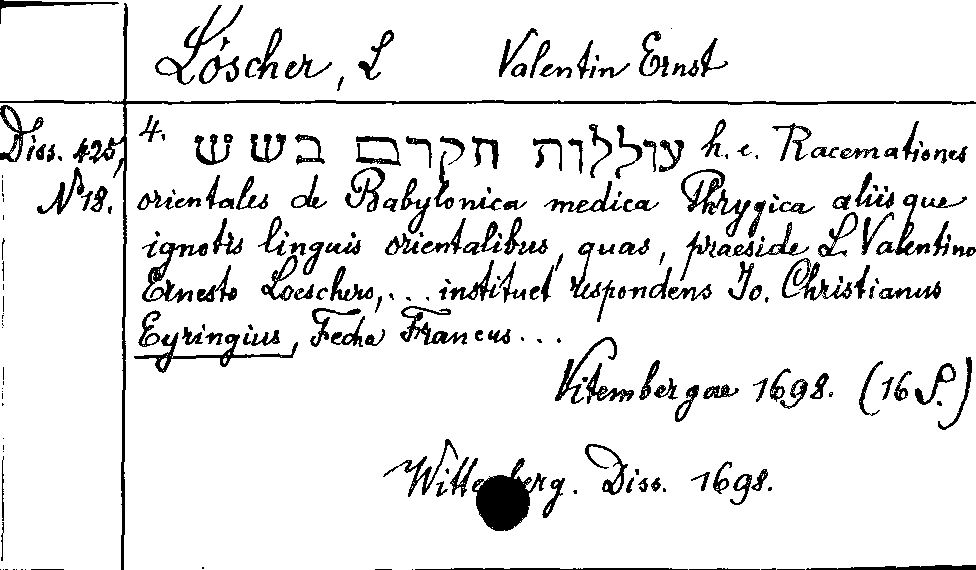 Löscher, L Valentin Ernst
Diss. 425,
No 18.
4. עוללות הקרם בשש h. e. Racemationes
orientales de Babylonica medica Phrygica aliisque
ignotis linguis orientalibus, quas, praeside L. Valentino
Ernesto Loeschero, ... instituet respondens Jo. Christianus
Eyringius, Fecha Francus ...
Vitembergae 1698. (16 S.)
Wittenberg. Diss. 1698.